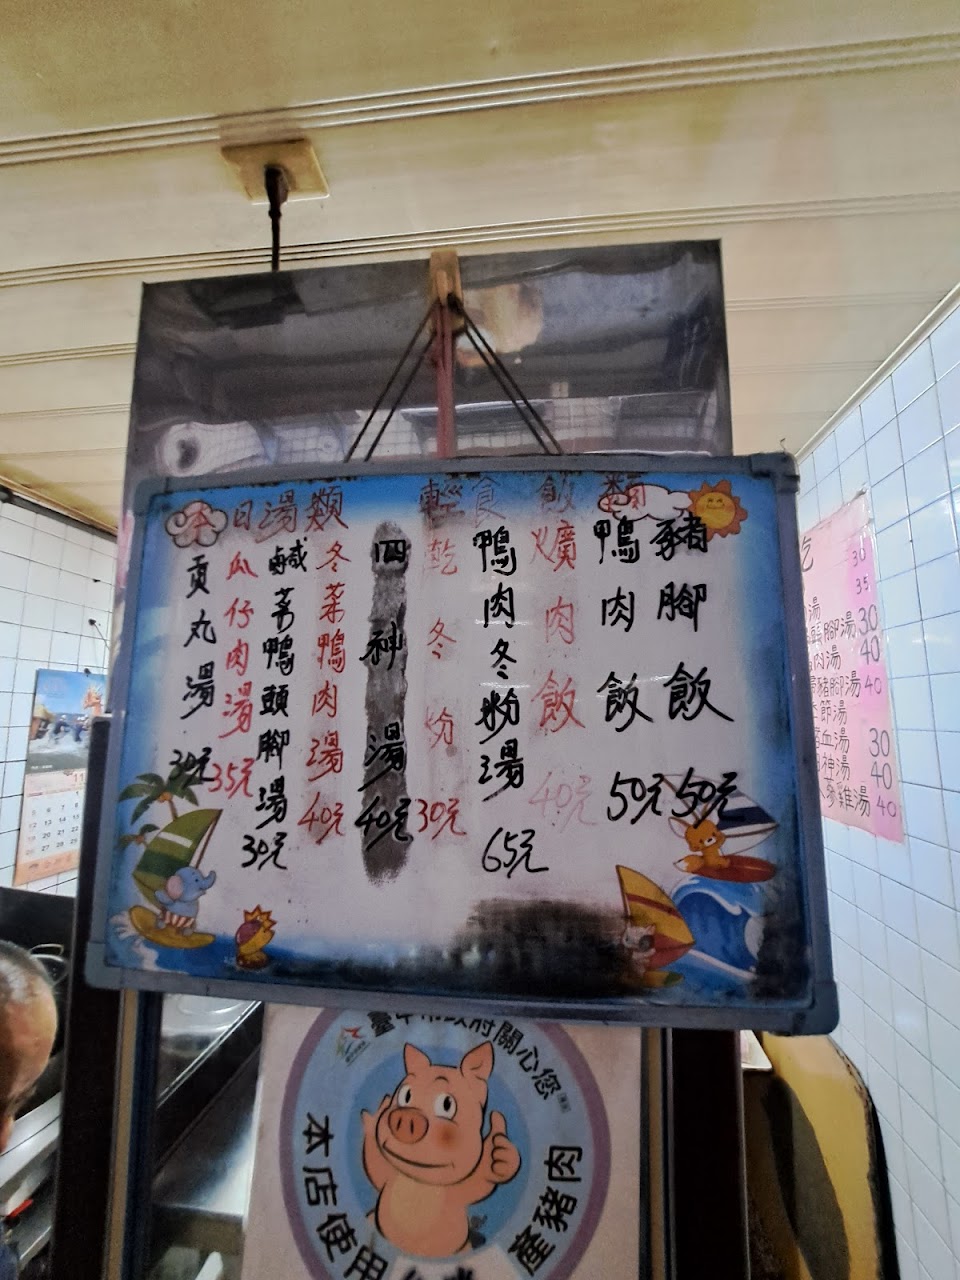 本日湯類
輕食
飯類
豬腳飯 50元
鴨肉飯 50元
爌肉飯 40元
鴨肉冬粉湯 65元
乾冬粉 30元
四神湯 40元
冬菜鴨肉湯 40元
鹹菜鴨頭腳湯 30元
瓜仔肉湯 35元
貢丸湯 30元
30
35
湯 30
腳湯 40
肉湯
豬腳湯 40
節湯
血湯 30
神湯 40
雞湯 40
11
臺中市政府關心您
本店使用
產豬肉